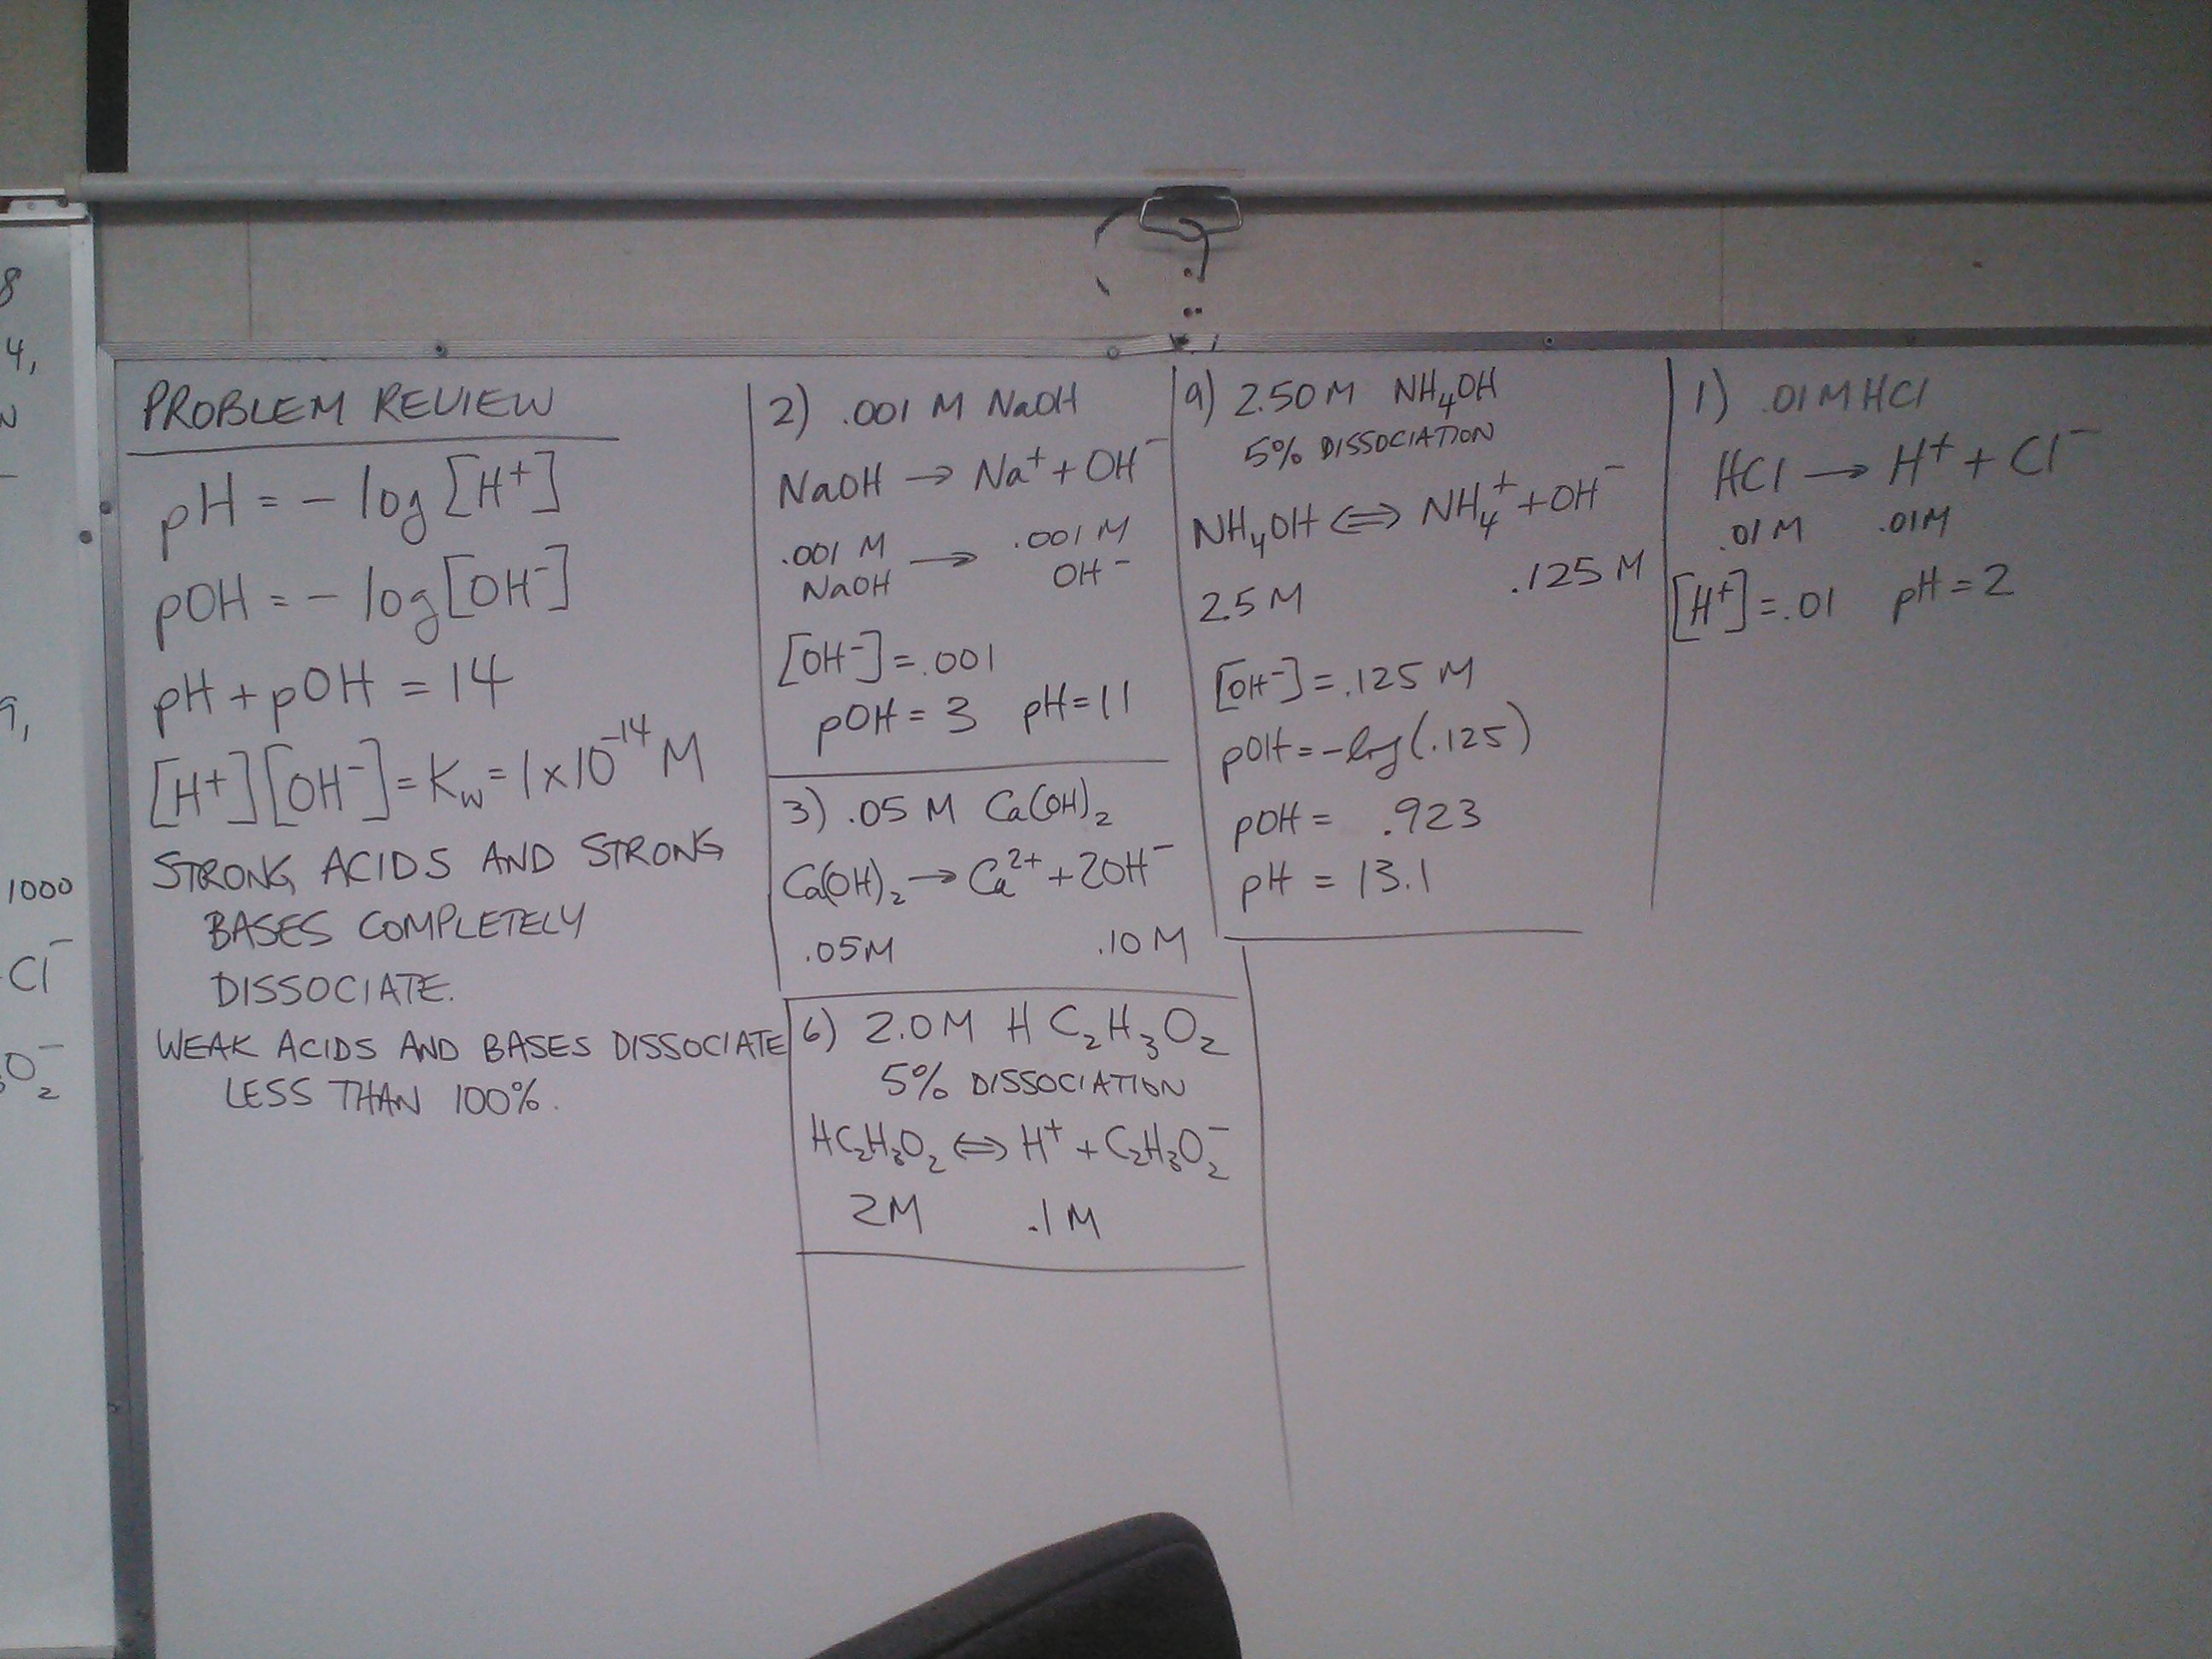 8
4,
N
9,
1000
Cl⁻
O₂⁻
PROBLEM REVIEW
pH = - log [H⁺]
pOH = - log [OH⁻]
pH + pOH = 14
[H⁺][OH⁻] = Kw = 1x10⁻¹⁴ M
STRONG ACIDS AND STRONG
BASES COMPLETELY
DISSOCIATE.
WEAK ACIDS AND BASES DISSOCIATE
LESS THAN 100%.
2) .001 M NaOH
NaOH → Na⁺ + OH⁻
.001 M → .001 M
NaOH OH⁻
[OH⁻] = .001
pOH = 3 pH = 11
3) .05 M Ca(OH)₂
Ca(OH)₂ → Ca²⁺ + 2OH⁻
.05M .10 M
6) 2.0M HC₂H₃O₂
5% DISSOCIATION
HC₂H₃O₂ ⇔ H⁺ + C₂H₃O₂⁻
2M .1M
9) 2.50M NH₄OH
5% DISSOCIATION
NH₄OH ⇔ NH₄⁺ + OH⁻
2.5M .125 M
[OH⁻] = .125 M
pOH = -log(.125)
pOH = .923
pH = 13.1
1) .01M HCl
HCl → H⁺ + Cl⁻
.01M .01M
[H⁺] = .01 pH = 2